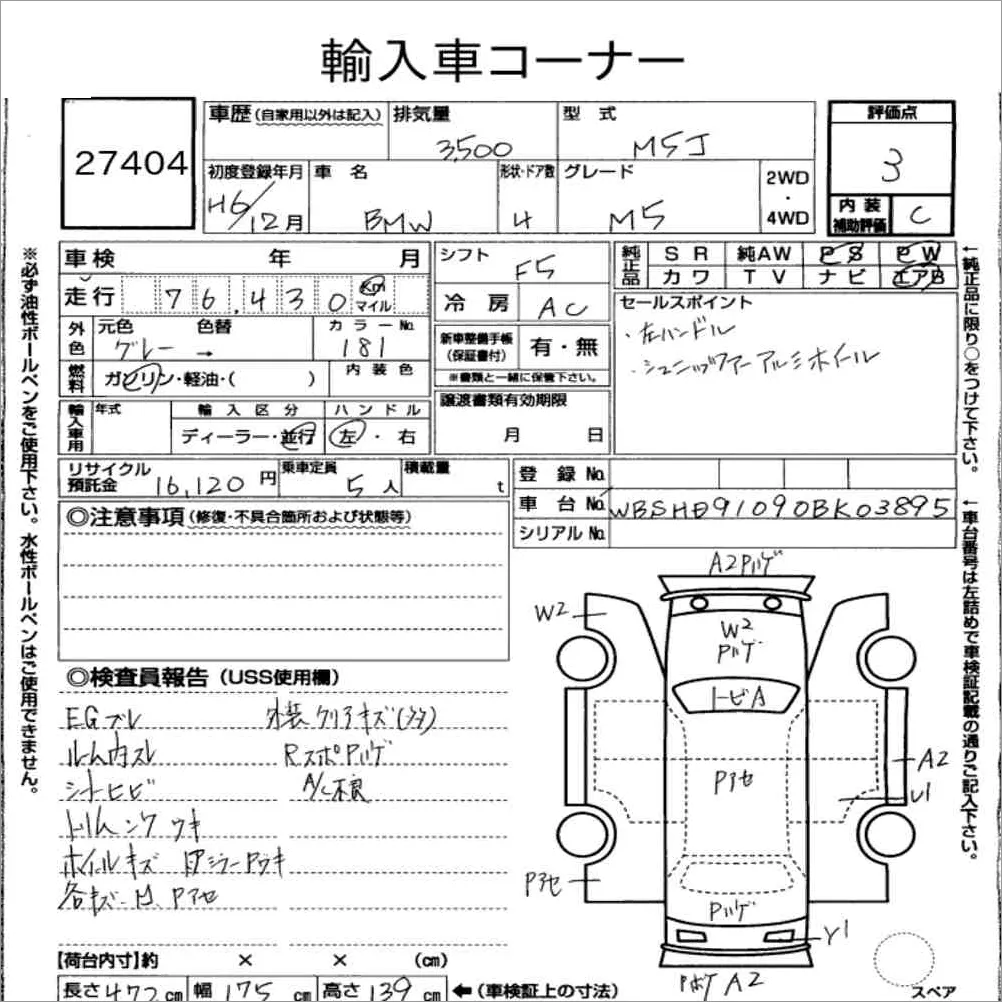 輸入車コーナー
27404
車歴 (自家用以外は記入)
排気量
3,500
型 式
M5J
評価点
3
初度登録年月
H6/12月
車 名
BMW
形状・ドア数
4
グレード
M5
2WD
・
4WD
内装
補助評価
C
車検 年 月
シフト
F5
純正品
SR 純AW PS PW
カワ TV ナビ エアB
走行 76,430 km
マイル
冷房
AC
セールスポイント
・左ハンドル
・シュニッツァーアルミホイール
外色
元色 色替
グレー →
カラーNo.
181
新車整備手帳
(保証書付)
有・無
※書類と一緒に保管下さい。
燃料
ガソリン・軽油・( )
内装色
輸入車用
年式
輸入区分
ディーラー・並行
ハンドル
左・右
譲渡書類有効期限
月 日
リサイクル
預託金
16,120円
乗車定員
5人
積載量
t
登録No.
車台No.
WBSHD91090BK03895
シリアルNo.
◎注意事項 (修復・不具合箇所および状態等)
※必ず油性ボールペンをご使用下さい。水性ボールペンはご使用できません。
←純正品に限り○をつけて下さい。
←車台番号は左詰めで車検証記載の通りご記入下さい。
A2Pハゲ
W2
W2
Pハゲ
トビA
Pアセ
A2
U1
Pアセ
Pハゲ
Y1
PボケA2
スペア
◎検査員報告 (USS使用欄)
EGブレ 外装クリアキズ(多々)
ルーム内スレ RスポPハゲ
シートヒビ A/C不良
トリムシワ ウキ
ホイルキズ
各キズ・凹、Pアセ
【荷台内寸】約 × × (cm)
長さ472cm 幅175cm 高さ139cm ←(車検証上の寸法)